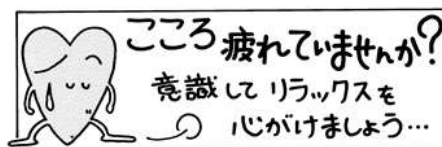 こころ疲れていませんか?
意識してリラックスを
心がけましょう…